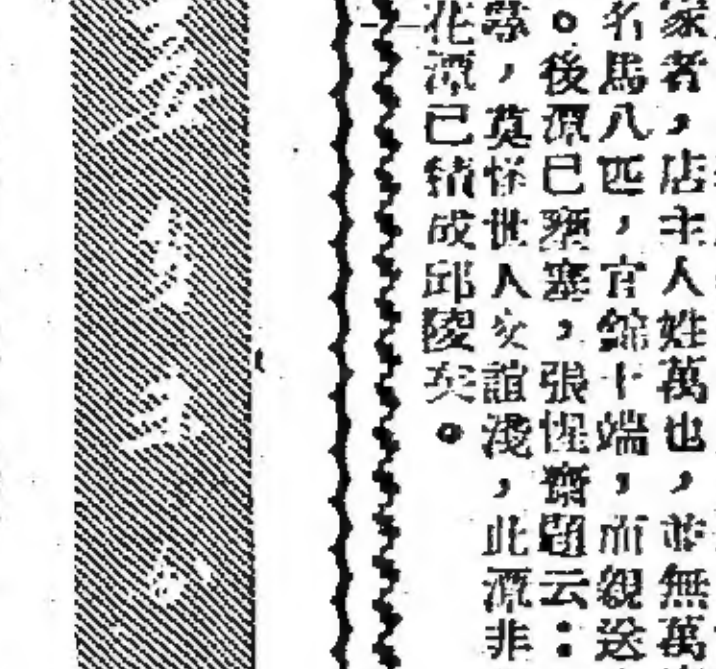 家者，店主人姓萬也，並無萬
名馬八匹，官錦十端，而親送
。後潭已壅塞，張惺齋題云：
，莫怪世人交誼淺，此潭非
花潭已積成邱陵矣。